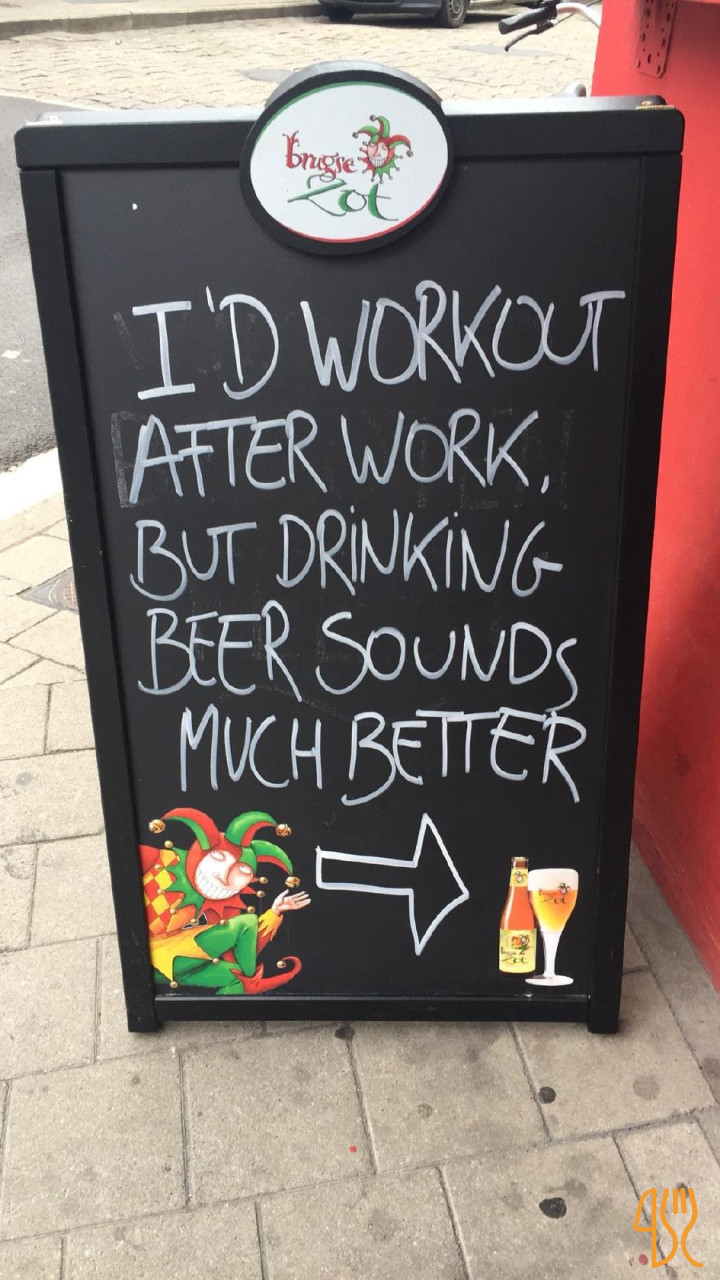 brugse
Zot
I'D WORKOUT
AFTER WORK,
BUT DRINKING
BEER SOUNDS
MUCH BETTER
brugse
Zot